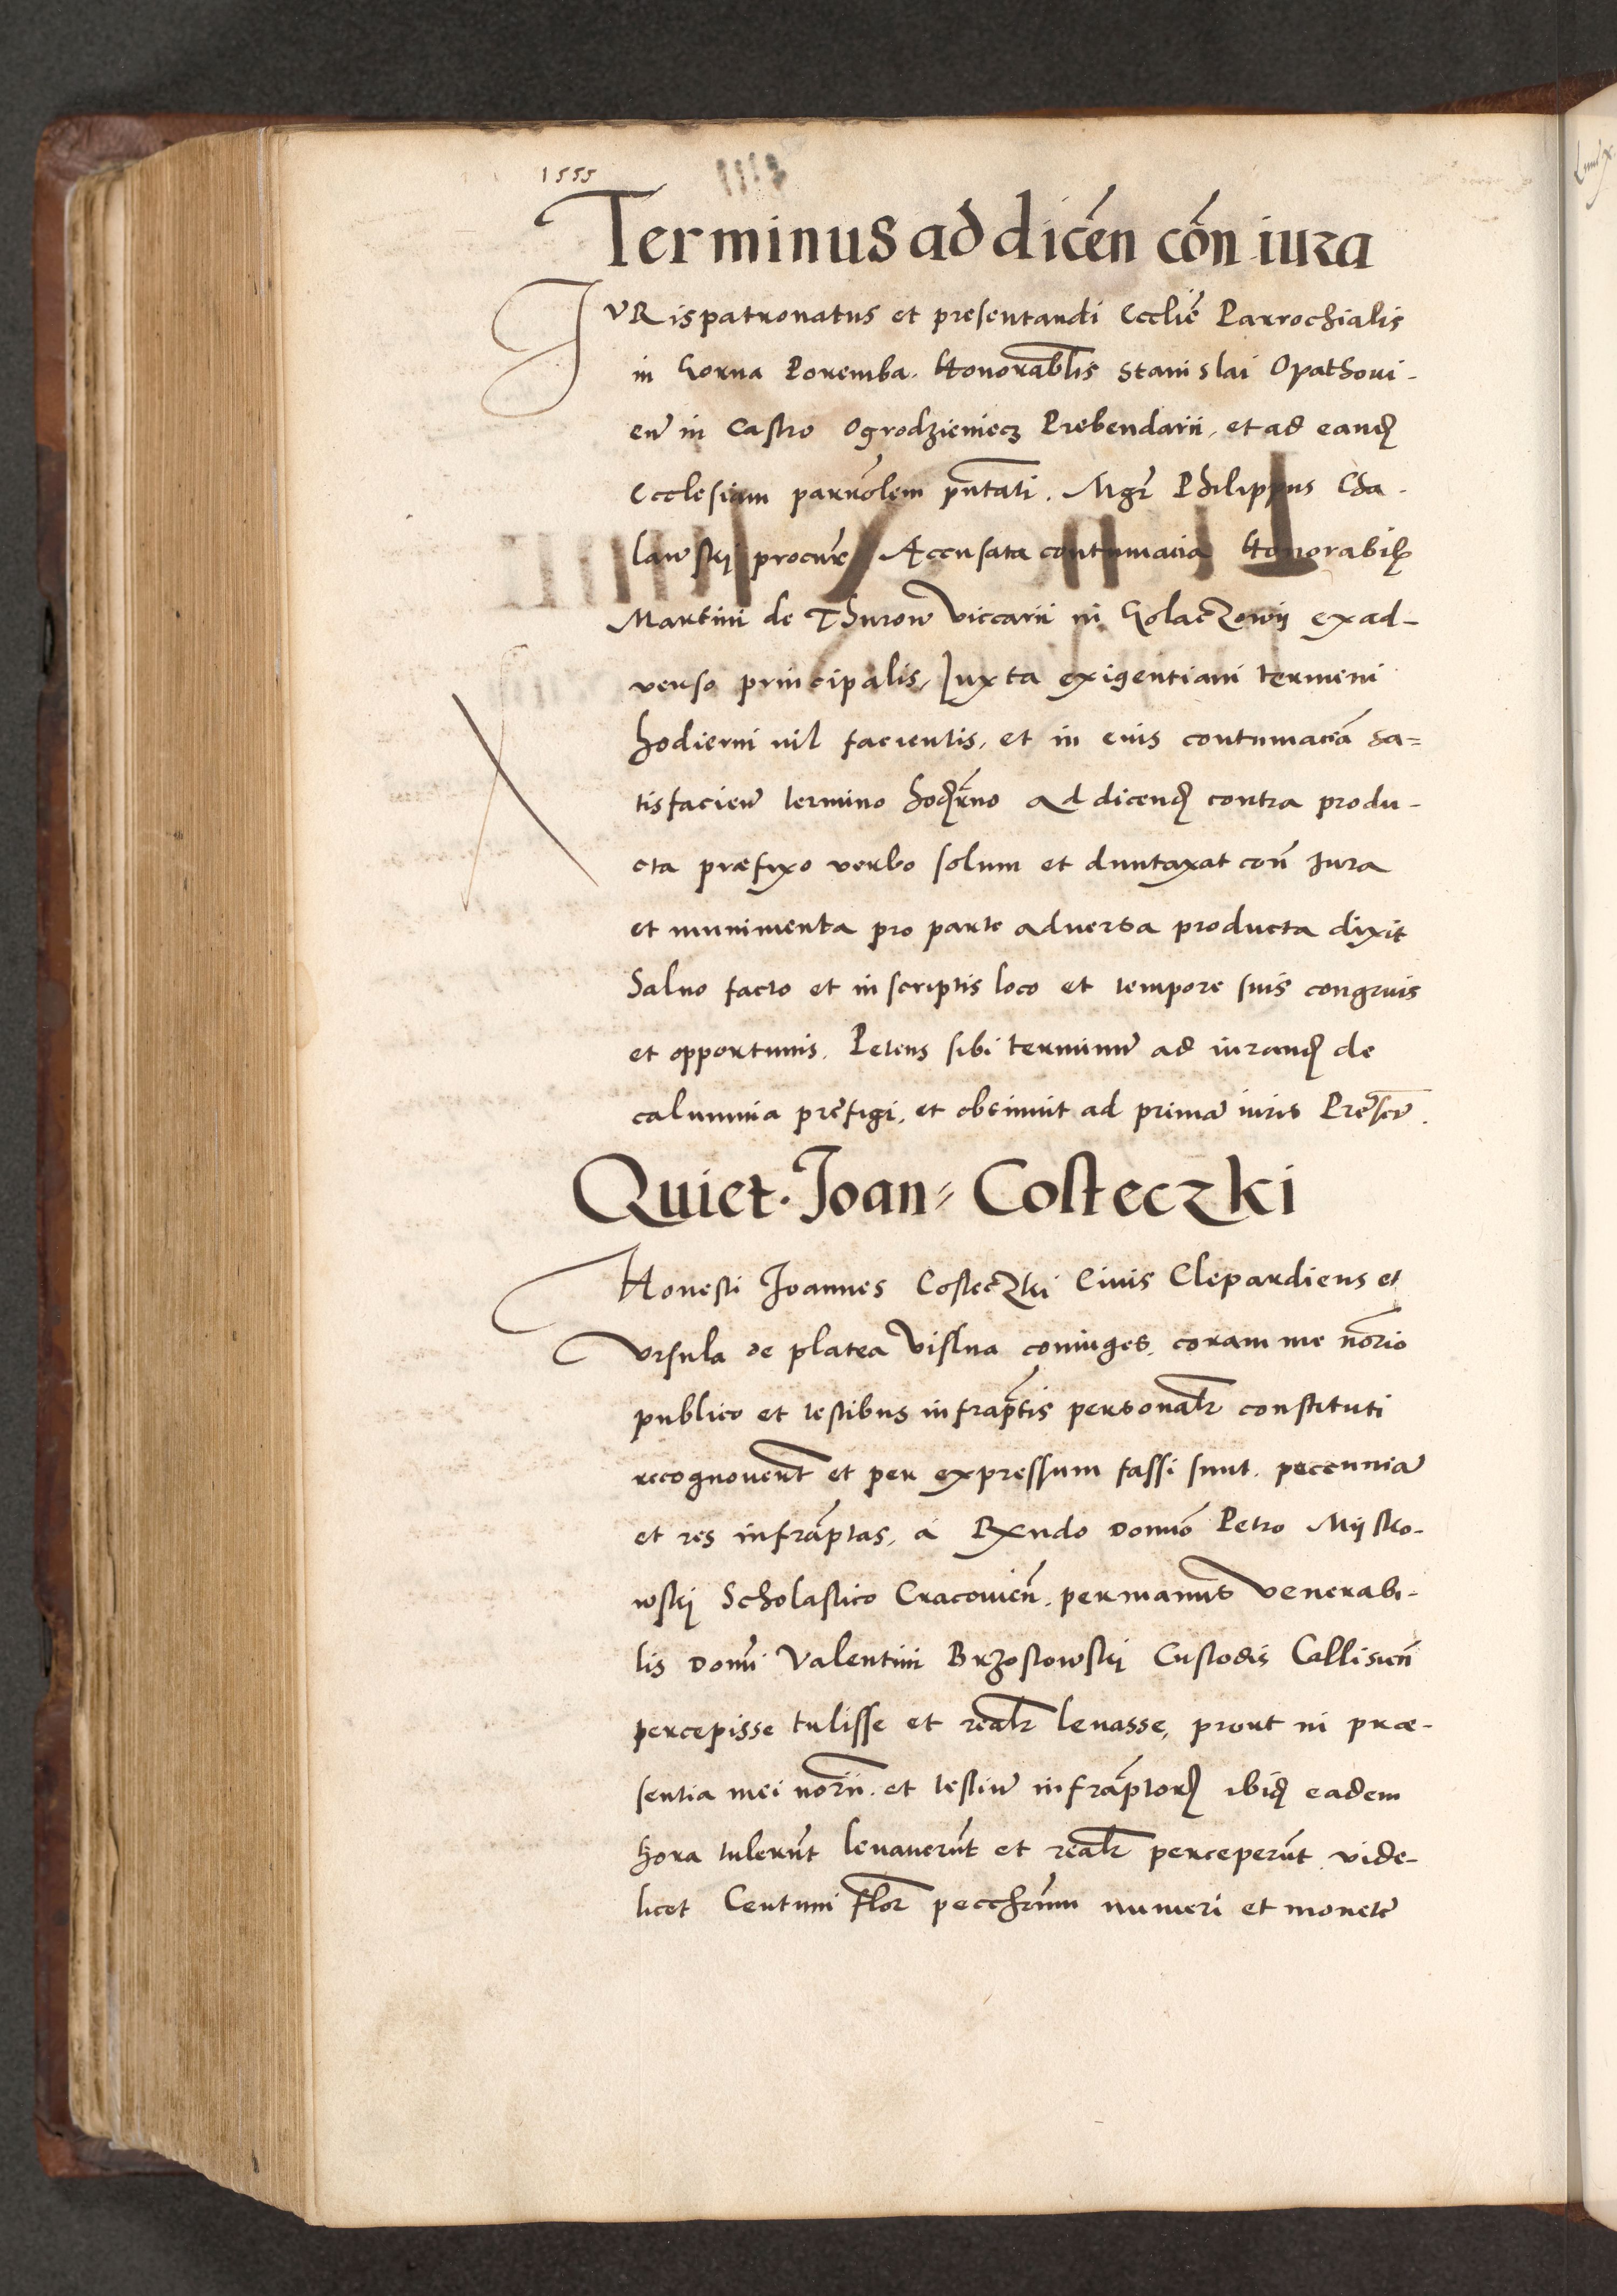 1555
Terminus ad dicẽn cõn iura
IVRis patronatus et presentandi Ecclie᷃ Parrochialis
in Gorna Poremba. Honorablis Stanislai Opathovi-
en̄ in Castro Ogrodzieniecz Prebendarii, et ad eand̄
Ecclesiam parrõlem pñtati. Mgr̃ Philippus Cha-
lawskij procur̃ Accusata contumacia Honorabił
Martini de Thurow viccarii in Golaczowij ex ad-
verso principalis, Juxta exigentiam termini
hodierni nil facientis, et in eius contumaciã sa=
tisfacien̄ termino hodierno ad dicend̄ contra produ-
cta præfixo verbo solum et duntaxat con̄ Jura
et munimenta pro parte adversa producta dixit
Salvo facto et in scriptis loco et tempore suis congruis
et opportunis. Petens sibi terminū ad iurand̄ de
calumnia prefigi, et obtinuit ad primā iuris
Quiet. Joan= Costeczki
Honesti Joannes Costeczki Civis Clepardiens et
Vrsula de platea Vislna coniuges, coram me nõrio
publico et testibus infrap̃tis personałr constituti
recognoverũt et per expressum fassi sunt. peccuniā
et res infrãptas, á Rxndo Domĩo Petro Mijsko-
wskij Scholastico Cracovien̄. per manus Venerabi-
lis Domĩ Valentini Brzostowskij Custodis Callisien̄
percepisse tulisse et reałr levasse, prout in præ-
sentia mei norii. et testiū infrãptor̄ ibid̄ eadem
hora tulerũt levaverũt et reałr perceperũt vide-
licet Centum flor̃ peccuniarum numeri et monetę